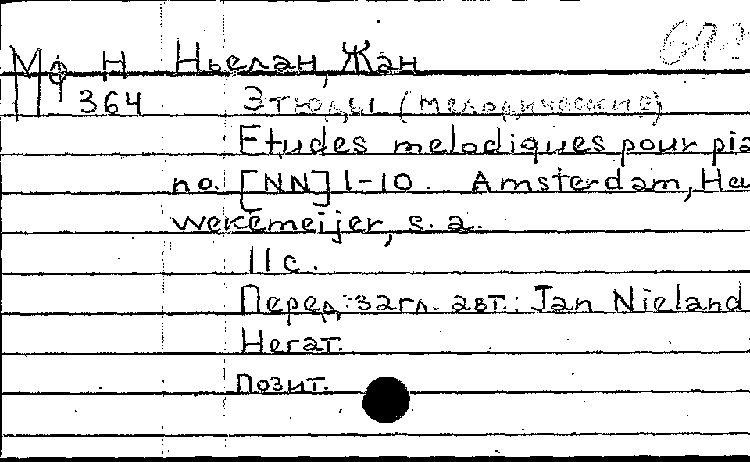 Мф Н Ньелан, Жан
364 Этюды (мелодические)
Etudes melodiques pour pia
no. [NN] 1-10. Amsterdam, Heu
wekemeijer, s. a.
11 с.
Перед загл. авт.: Jan Nieland
Негат.
Позит.